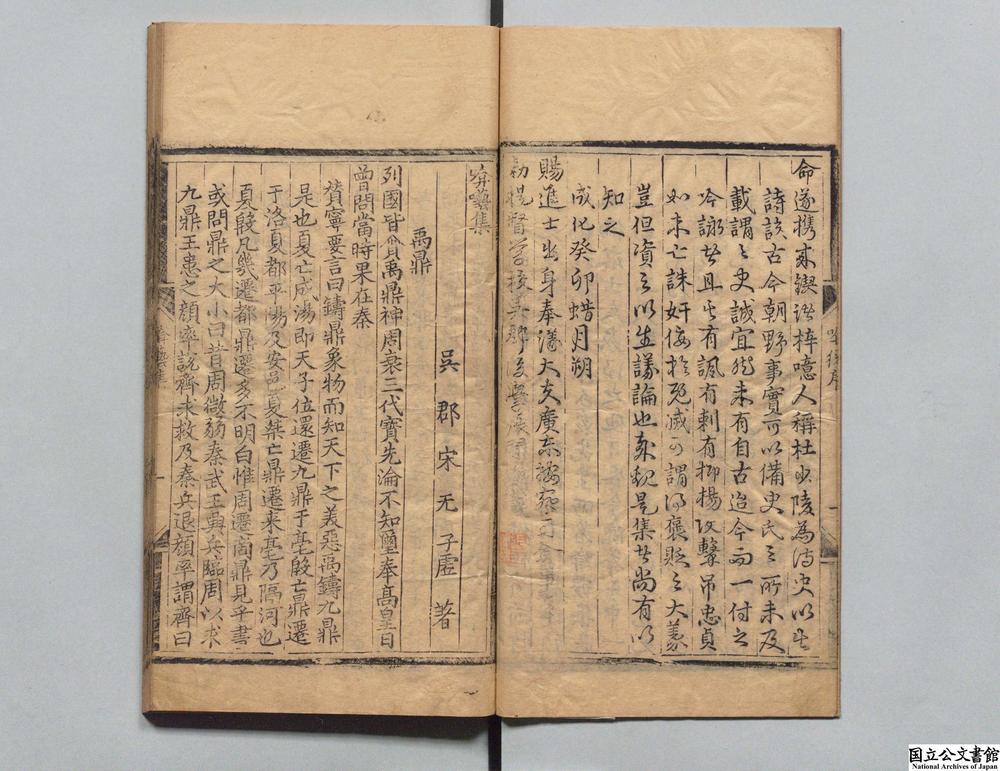 命遂携來鋟諸梓噫人稱杜少陵為詩史以其
詩該古今朝野事實可以備史氏之所未及
載謂之史誠宜然未有自古迄今而一付之
吟詠者且其有諷有刺有抑揚攻擊吊忠貞
如未亡誅奸佞於既滅可謂得褒貶之大義
豈但資之以生議論也哉觀是集者尚有以
知之
成化癸卯蜡月朔
賜進士出身奉議大夫廣東按察司僉事奉
勑提督學校
啽囈集
吳郡宋无子虛著
禹鼎
列國皆貪禹鼎神周衰三代寶先淪不知璽奉高皇日
曾問當時果在秦
賛寧要言曰鑄鼎象物而知天下之美惡禹鑄九鼎
是也夏亡成湯即天子位還遷九鼎于亳殷亡鼎遷
于洛夏都平陽及安邑夏桀亡鼎遷来亳乃隔河也
夏殷凡幾遷都鼎遷多不明白惟周遷商鼎見乎書
或問鼎之大小曰昔周微弱秦武王興兵臨周以求
九鼎王患之顔率説齊求救及秦兵退顔率謂齊曰
国立公文書館
National Archives of Japan